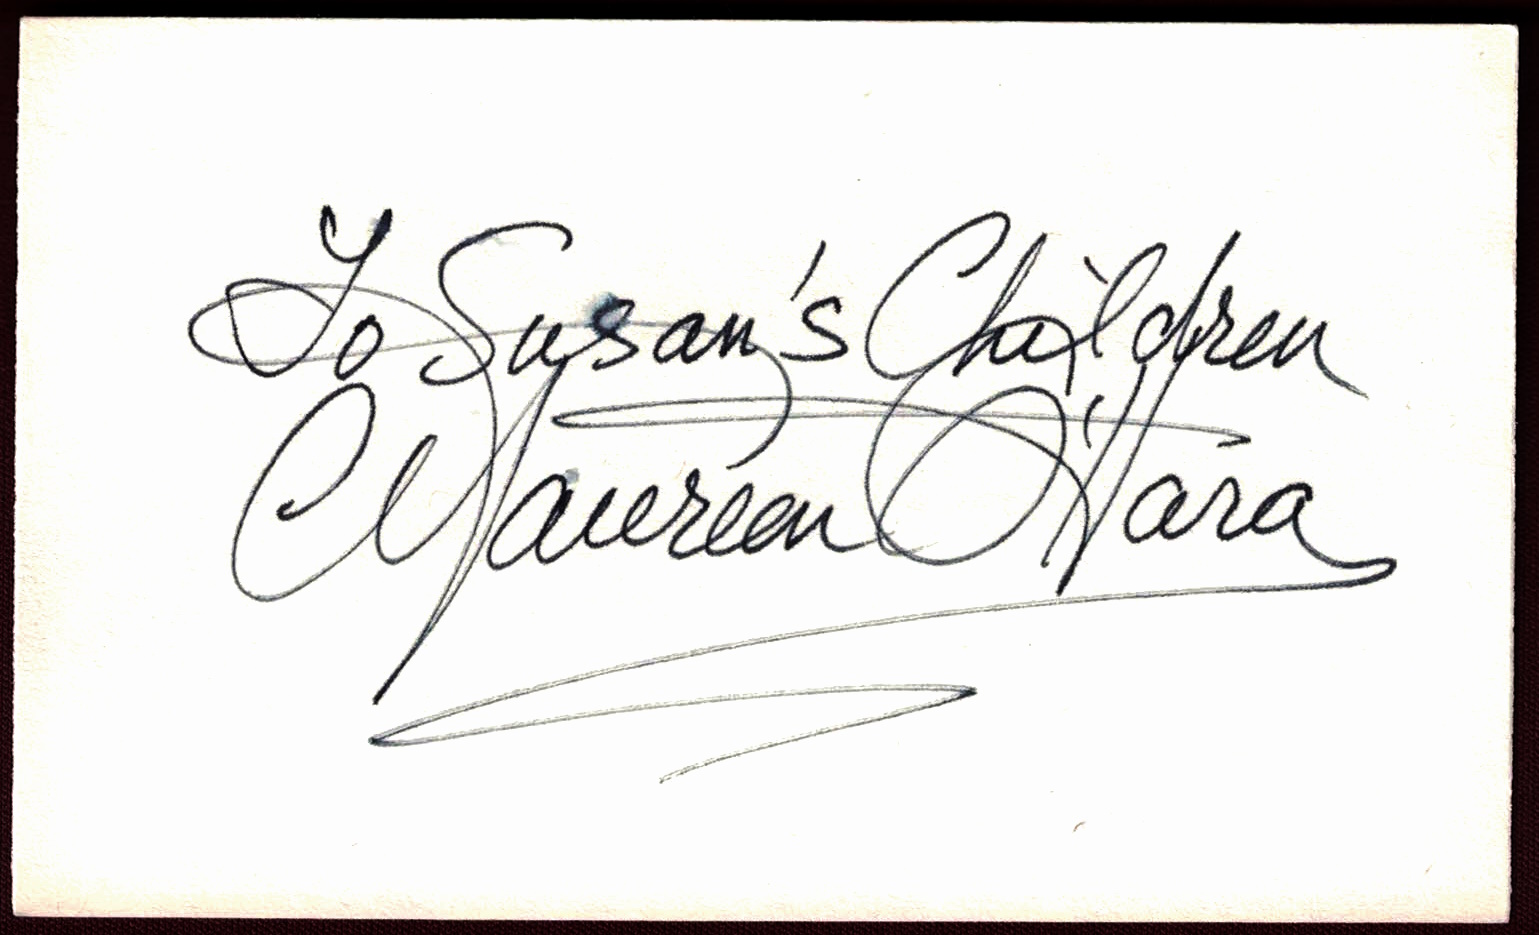 To Susan's Children
Maureen O'Hara